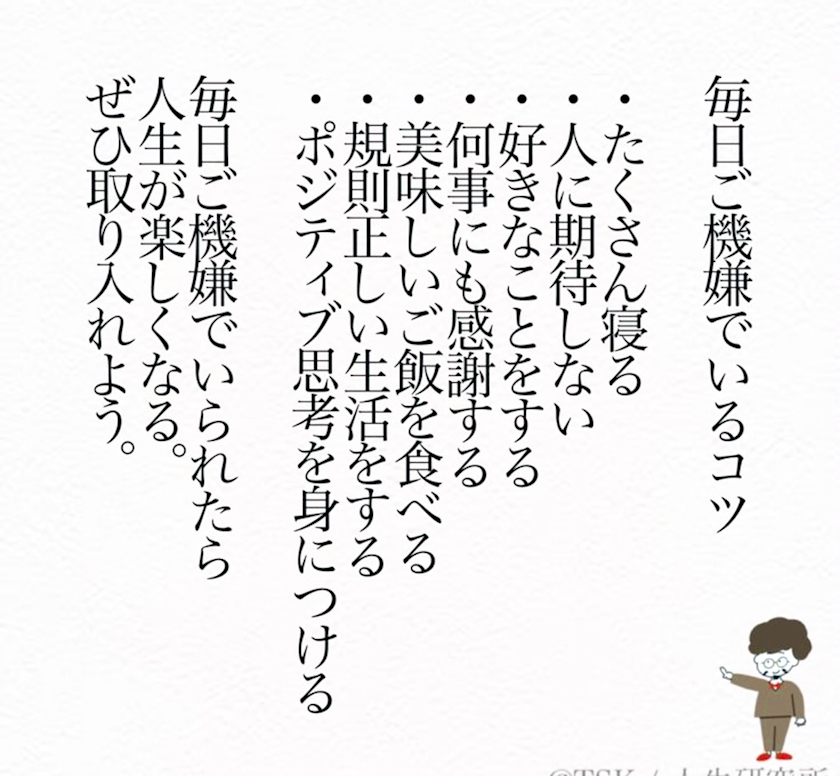 毎日ご機嫌でいるコツ
・たくさん寝る
・人に期待しない
・好きなことをする
・何事にも感謝する
・美味しいご飯を食べる
・規則正しい生活をする
・ポジティブ思考を身につける
毎日ご機嫌でいられたら
人生が楽しくなる。
ぜひ取り入れよう。
@TSK / 人生研究所